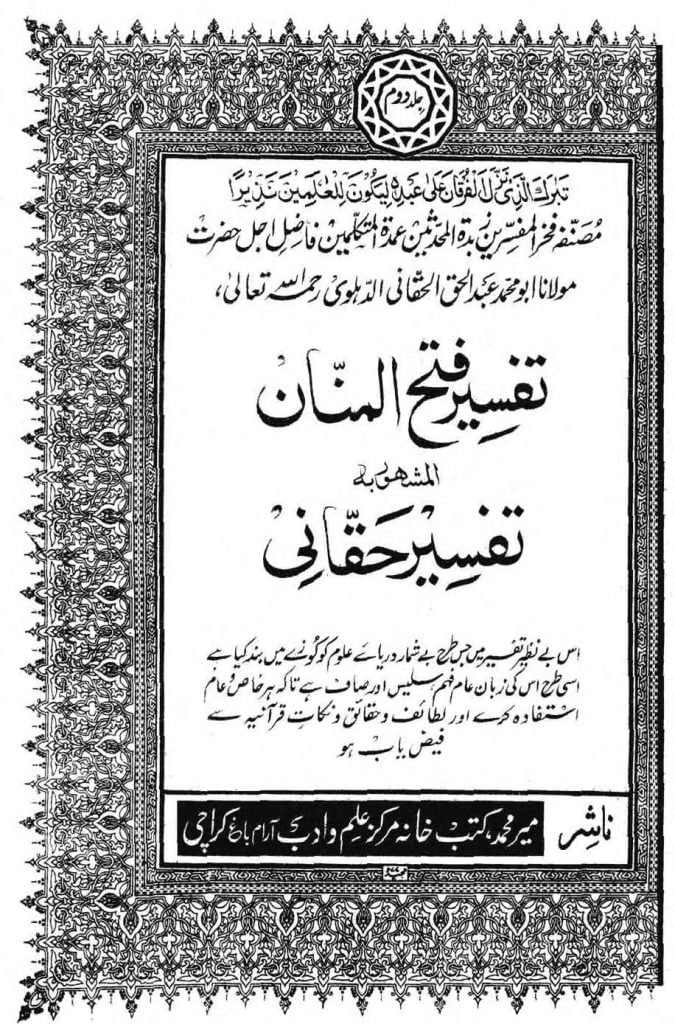 جلد دوم
تَبٰرَكَ الَّذِیْ نَزَّلَ الْفُرْقَانَ عَلٰی عَبْدِهٖ لِیَكُوْنَ لِلْعٰلَمِیْنَ نَذِیْرًا
مُصنّفہ فخر المفسرین زبدة المحدثین عمدة المتکلمین فاضلِ اجل حضرت
مولانا ابو محمد عبد الحق الحقانی الدہلوی رحمہ اللہ تعالیٰ،
تفسیر فتح المنّان
المشہور بہ
تفسیر حَقّانِی
اس بے نظیر تفسیر میں جس طرح بے شمار دریائے علوم کو کُوزے میں بند کیا ہے
اسی طرح اس کی زبان عام فہم، سلیس اور صاف ہے تاکہ ہر خاص و عام
استفادہ کرے اور لطائف و حقائق و نکاتِ قرآنیہ سے
فیض یاب ہو
ناشِر
میر محمد، کتب خانہ مرکز علم و ادب آرام باغ کراچی